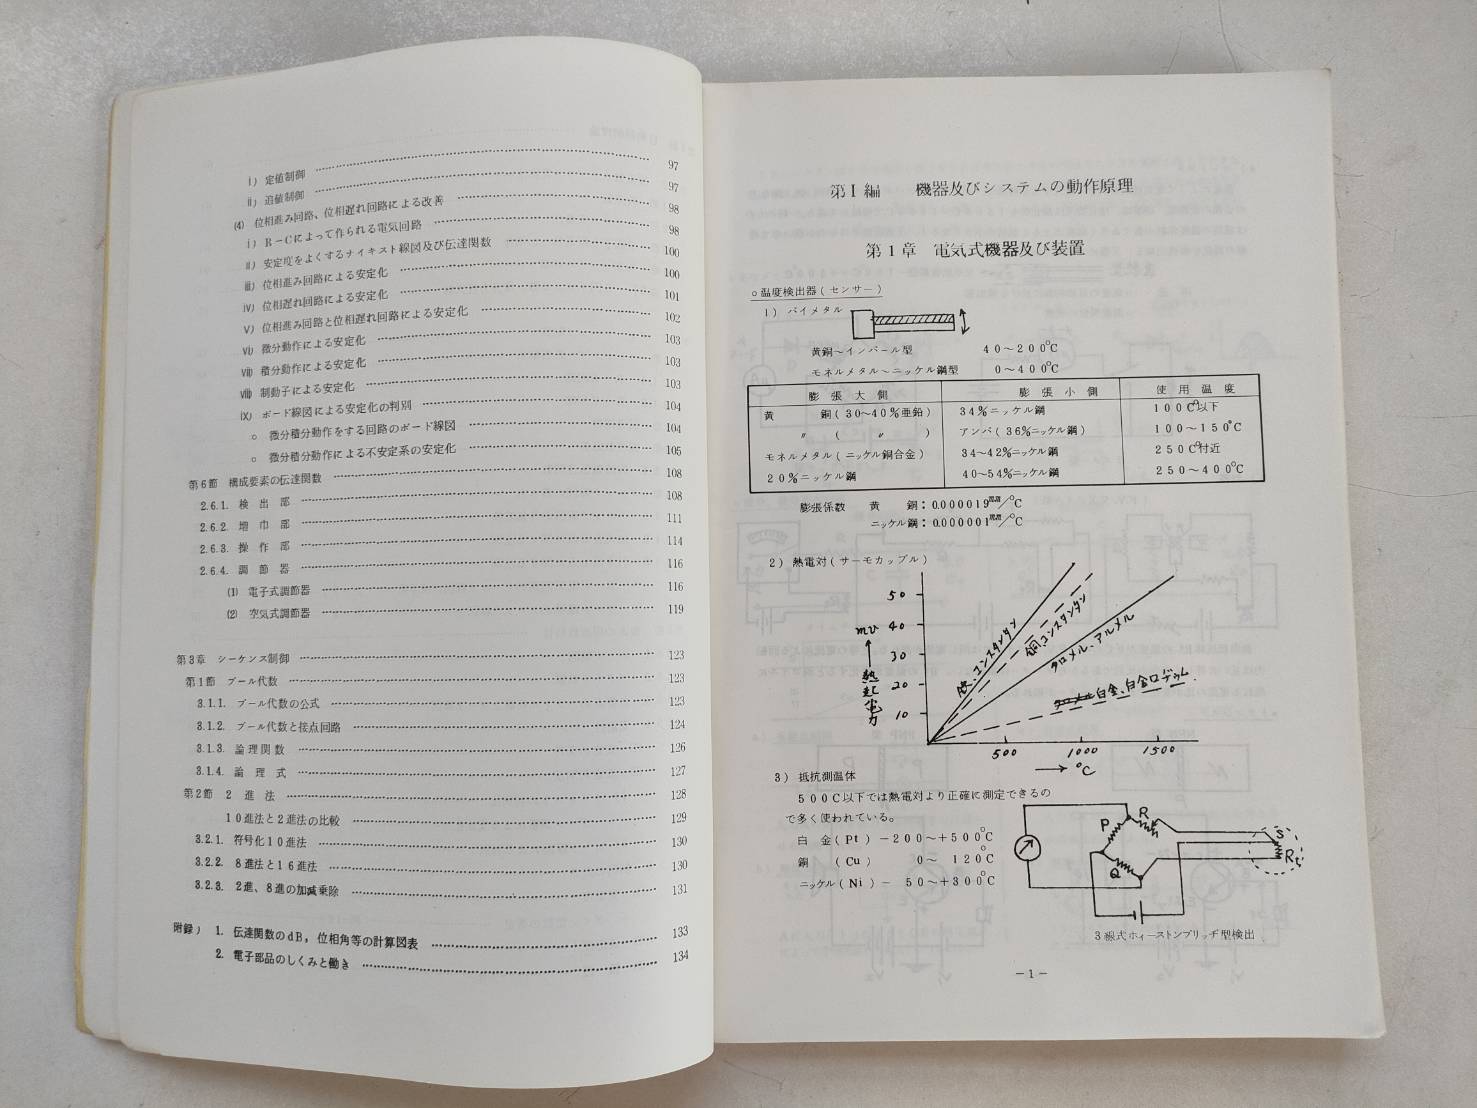 i) 定値制御 …… 97
ii) 追値制御 …… 97
(4) 位相進み回路、位相遅れ回路による改善 …… 98
i) R−Cによって作られる電気回路 …… 98
ii) 安定度をよくするナイキスト線図及び伝達関数 …… 100
iii) 位相進み回路による安定化 …… 100
iv) 位相遅れ回路による安定化 …… 101
v) 位相進み回路と位相遅れ回路による安定化 …… 102
vi) 微分動作による安定化 …… 103
vii) 積分動作による安定化 …… 103
viii) 制動子による安定化 …… 103
ix) ボード線図による安定化の判別 …… 104
○ 微分積分動作をする回路のボード線図 …… 104
○ 微分積分動作による不安定系の安定化 …… 105
第6節 構成要素の伝達関数 …… 108
2.6.1. 検出部 …… 108
2.6.2. 増巾部 …… 111
2.6.3. 操作部 …… 114
2.6.4. 調節器 …… 116
(1) 電子式調節器 …… 116
(2) 空気式調節器 …… 119
第3章 シーケンス制御 …… 123
第1節 ブール代数 …… 123
3.1.1. ブール代数の公式 …… 123
3.1.2. ブール代数と接点回路 …… 124
3.1.3. 論理関数 …… 126
3.1.4. 論理式 …… 127
第2節 2進法 …… 128
10進法と2進法の比較 …… 129
3.2.1. 符号化10進法 …… 130
3.2.2. 8進法と16進法 …… 130
3.2.3. 2進、8進の加減乗除 …… 131
附録) 1. 伝達関数のdB，位相角等の計算図表 …… 133
2. 電子部品のしくみと働き …… 134
第I編 機器及びシステムの動作原理
第1章 電気式機器及び装置
○温度検出器(センサー)
1) バイメタル
黄銅〜インバール型 40〜200℃
モネルメタル〜ニッケル鋼型 0〜400℃
膨張大側 膨張小側 使用温度
黄銅(30〜40%亜鉛) 34%ニッケル鋼 100℃以下
〃 ( 〃 ) アンバ(36%ニッケル鋼) 100〜150℃
モネルメタル(ニッケル銅合金) 34〜42%ニッケル鋼 250℃付近
20%ニッケル鋼 40〜54%ニッケル鋼 250〜400℃
膨張係数 黄銅：0.000019mm/℃
ニッケル鋼：0.000001mm/℃
2) 熱電対(サーモカップル)
50
40
30
20
10
mv
熱起電力
鉄、コンスタンタン
銅、コンスタンタン
クロメル、アルメル
白金、白金ロデウム
500 1000 1500
→ ℃
3) 抵抗測温体
500C以下では熱電対より正確に測定できるの
で多く使われている。
白金(Pt) −200〜+500℃
銅 (Cu) 0〜 120℃
ニッケル(Ni) − 50〜+300℃
P R S Rt Q
3線式ホィーストンブリッヂ型検出
−1−